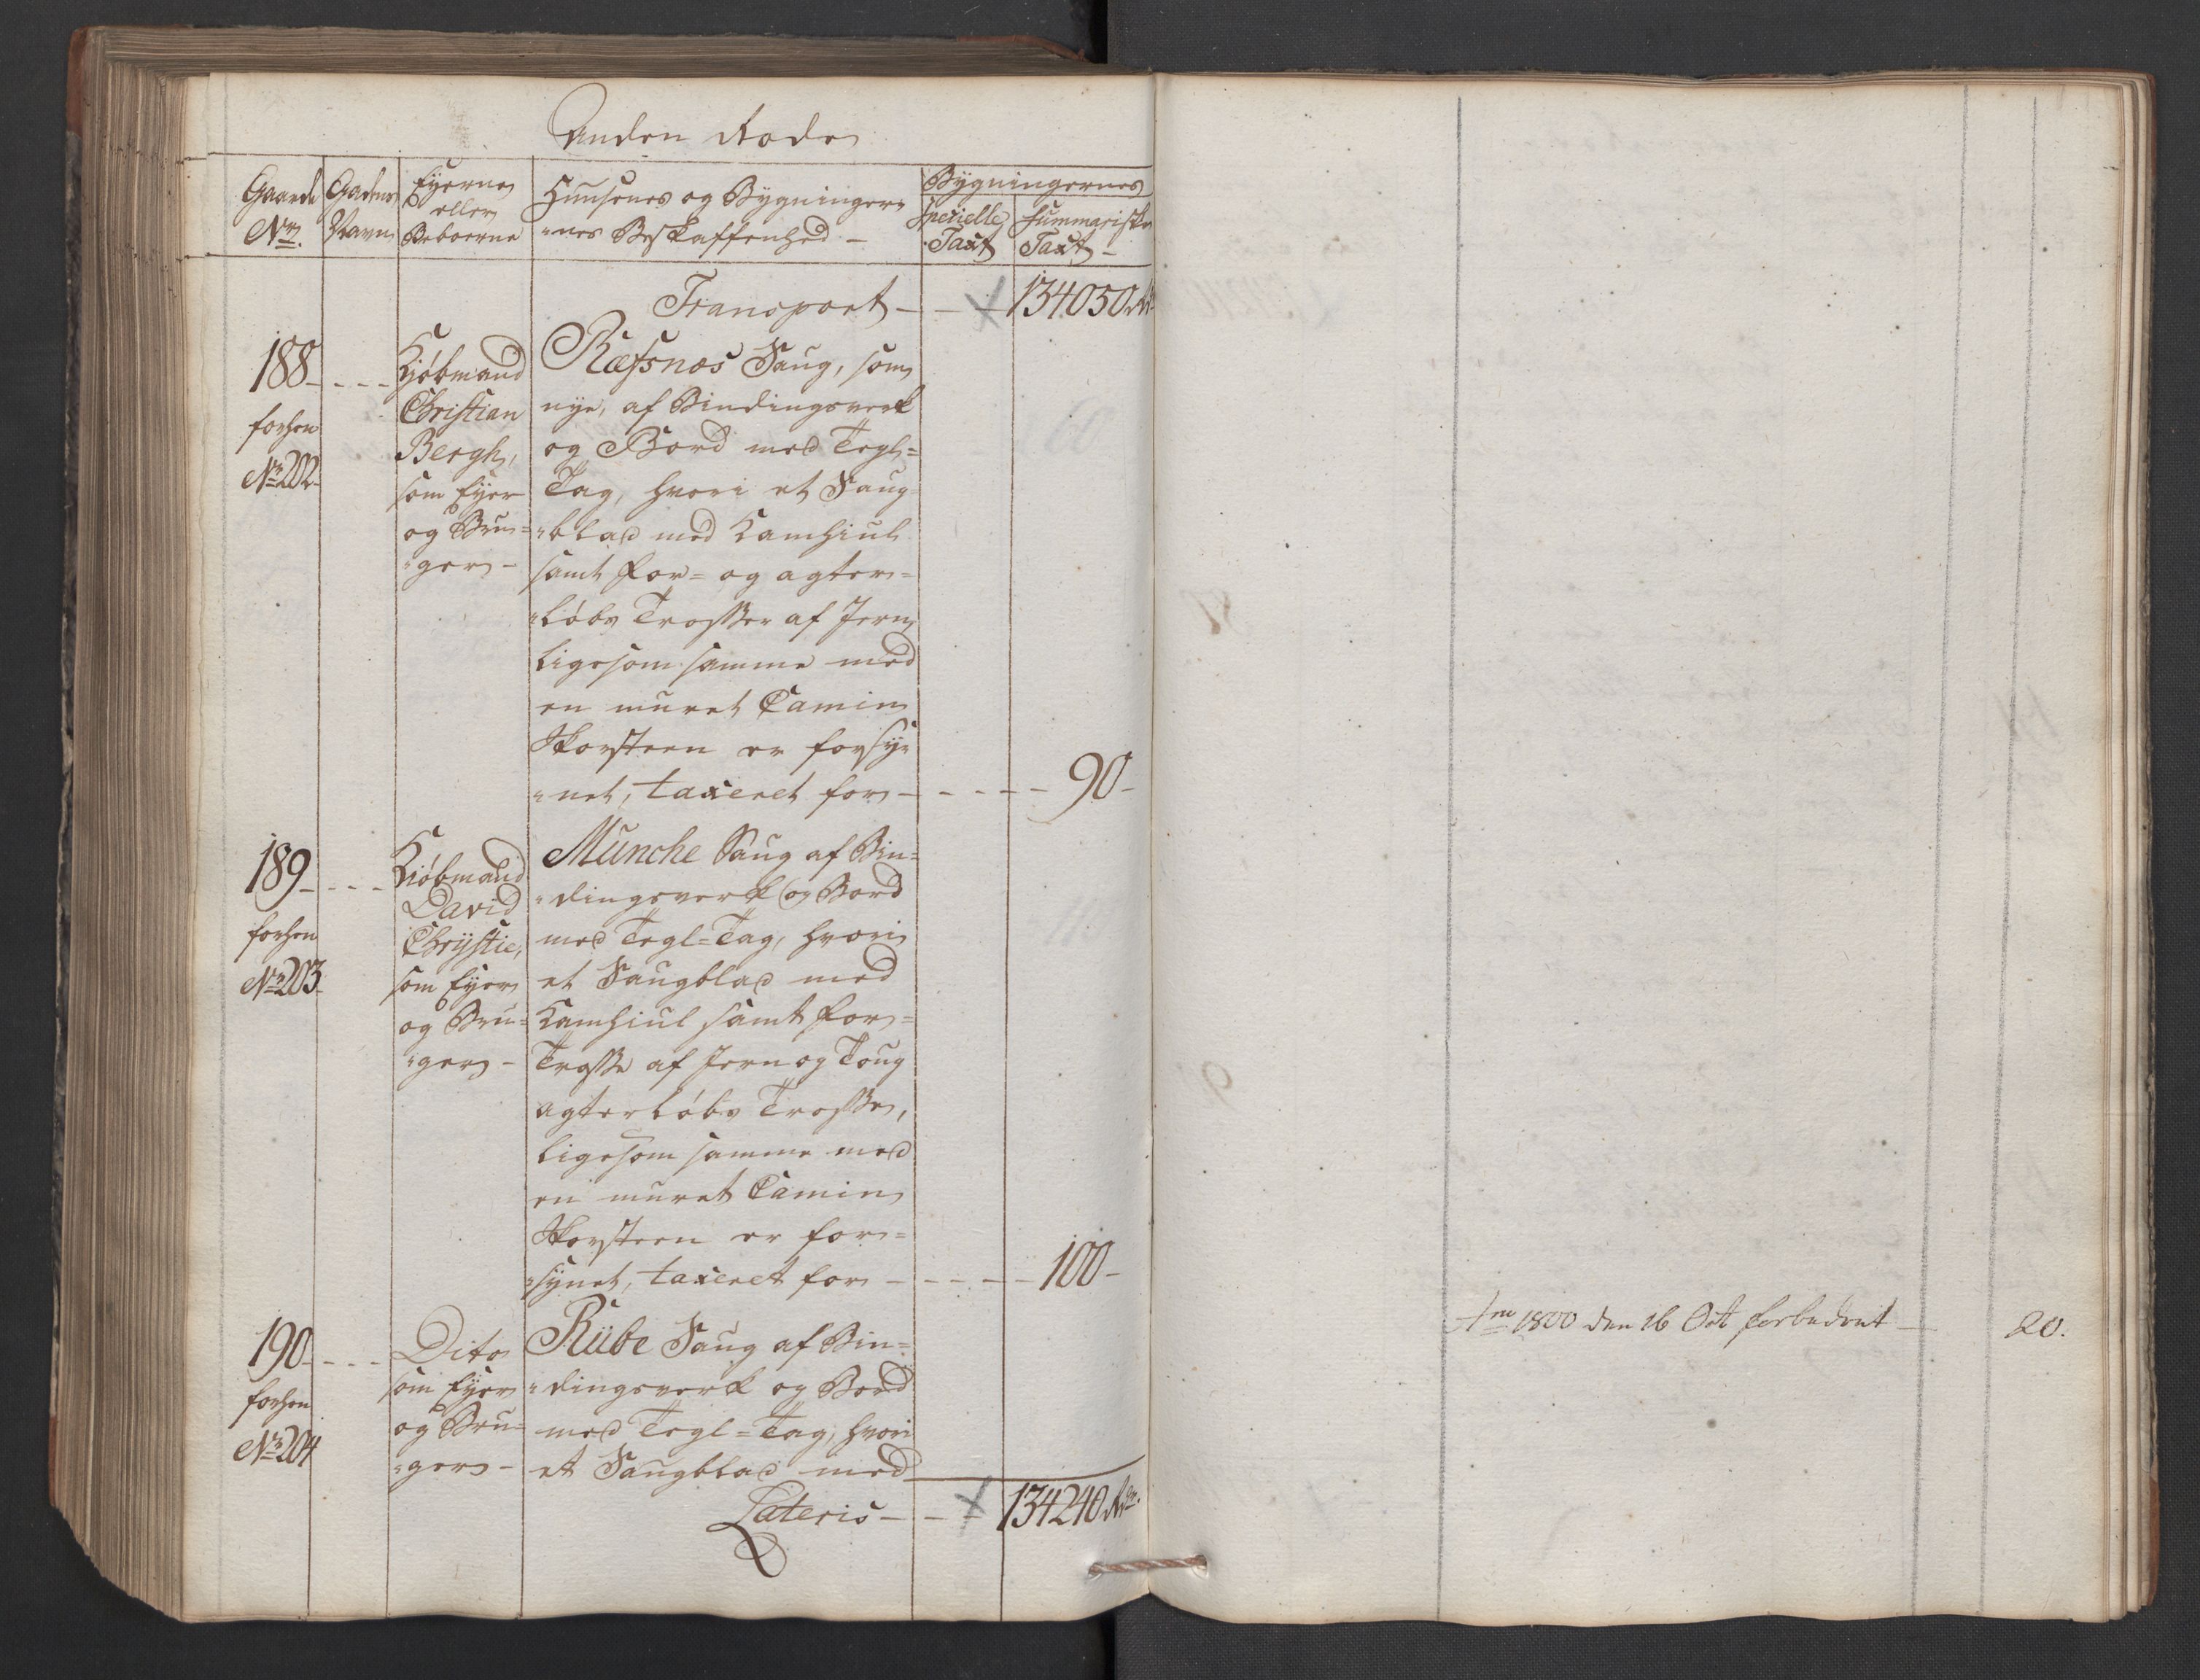 Anden Rode
Gaarde
Nr.
Gadens
Navn
Eyerne
eller
Beboerne
Huusenes og Bygninger-
"nes Beskaffenhed -
Bygningernes
Specielle
Taxt
Summariske
Taxt -
Transport - - - 134050 Rdr
188 - - - -
forhen
Nr 202.
Kjöbmand
Christian
Bergh,
som Eyer
og Bru=
"ger -
Ræfsnæs Saug, som
nye, af Bindingsverk
og Bord med Tegl=
Tag, hvori et Saug
"blad med Kamhiul
samt For= og agter=
"löbs Trosser af Jern
ligesom samme med
en muret Camin
Skorsteen er forsy=
"net, taxeret for - - - - - 90 -
189 - - - -
forhen
Nr 203.
Kiöbmand
David
Chrystie,
som Eyer
og Bru=
"ger -
Munche Saug af Bin=
"dingsverk og Bord
med Tegl=Tag, hvori
et Saugblad med
Kamhiul samt For=
Trosse af Jern og Toug
agterlöbs Trosse,
ligesom samme med
en muret Camin
Skorsteen er for=
"synet, taxeret for - - - - - 100 -
190 - - - -
forhen
Nr 204
Dito
som Eyer
og Bru=
"ger -
Rübe Saug af Bin=
"dingsverk og Bord
med Tegl=Tag, hvori
et Saugblad med
Lateris - - - 134240 Rdr.
1800 den 16 Oct forbedret - 20.